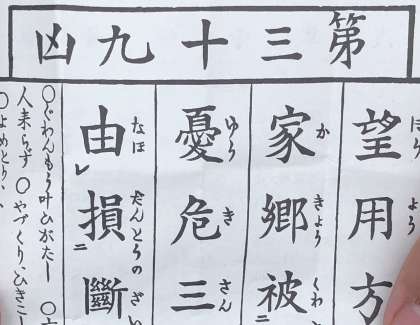 第三十九凶
望用方
よう
家郷被
か きょう くわ
憂危三
ゆう き さん
由損斷
なほ だんとうの ざい
レ 二
○ぐわんもう叶ひがたし ○
人来らず ○やづくり、ひきこ
○よめとり、